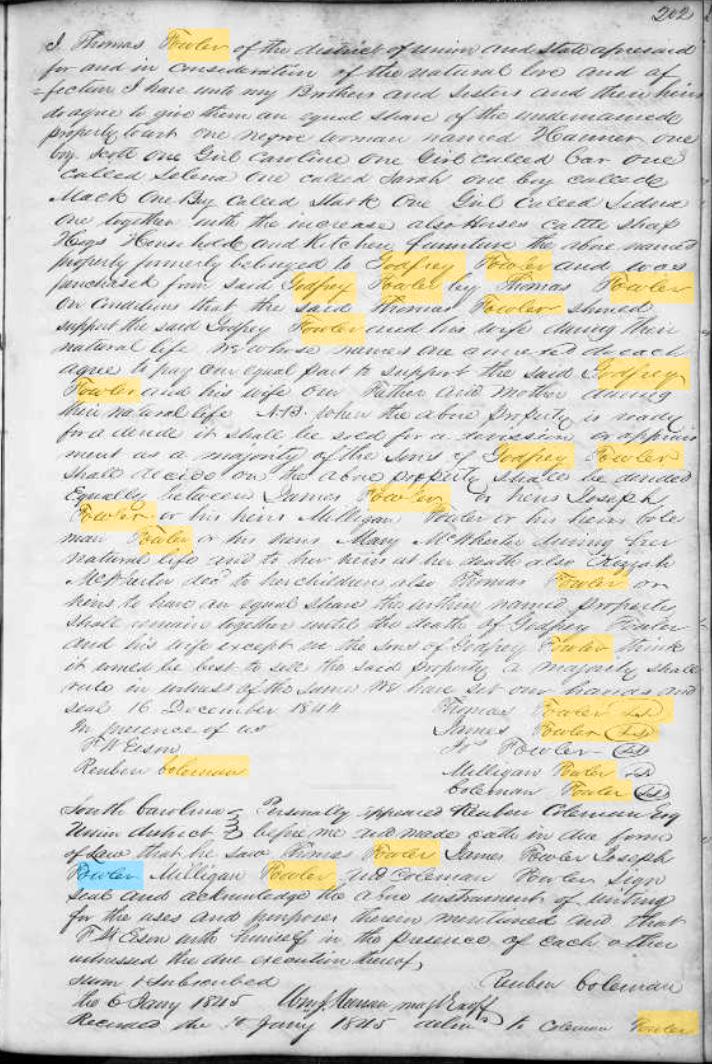 202
I Thomas Fowler of the district of union and state aforesaid
for and in consideration of the natural love and af
=fection I have unto my Brothers and Sisters and their heirs
do agree to give them an equal share of the undernamed
property to wit one negroe woman named Hanner one
boy Scott one Girl Caroline one Girl called Car one
called Selena one called Sarah one boy called
Mack One Boy Called Mark One Girl Called
one together with the increase also Horses cattle sheep
Hogs House hold and Kitchen furniture the above named
property formerly belonged to Godfrey Fowler and was
purchased from said Godfrey Fowler by Thomas Fowler
on conditions that the said Thomas Fowler should
support the said Godfrey Fowler and his wife during their
natural life We whose names are annexed do each
agree to pay our equal part to support the said Godfrey
Fowler and his wife our Father and Mother during
their natural life N.B. when the above property is ready
for a devide it shall be sold for a devision or apprais
ment as a majority of the sons of Godfrey Fowler
shall decide on the above property shall be devided
Equally between James Fowler or heirs Joseph
Fowler or his heirs Milligan Fowler or his heirs Cole
man Fowler or his heirs Mary McWherter during her
natural life and to her heirs at her death also Kizzah
McWherter decd to her children also Thomas Fowler or
heirs to have an equal share the within named property
shall remain together until the death of Godfrey Fowler
and his wife except we the sons of Godfrey Fowler think
it would be best to sell the said property a majority shall
rule in witness of the same We have set our hands and
seal 16 December 1844 Thomas Fowler LS
In presence of us James Fowler LS
F W Eison Js Fowler LS
Reuben Coleman Milligan Fowler LS
Coleman Fowler LS
South Carolina } Personally appeared Reuben Coleman Esq
Union district } before me and made oath in due form
of Law that he saw Thomas Fowler James Fowler Joseph
Fowler Milligan Fowler and Coleman Fowler sign
seal and acknowledge the above instrument of writing
for the uses and purposes therein mentioned and that
F W Eison with himself in the presence of each other
witnessed the due execution thereof,
sworn & subscribed Reuben Coleman
the 6 Jany 1845 magt
Recorded the Jany 1845 to Coleman Fowler